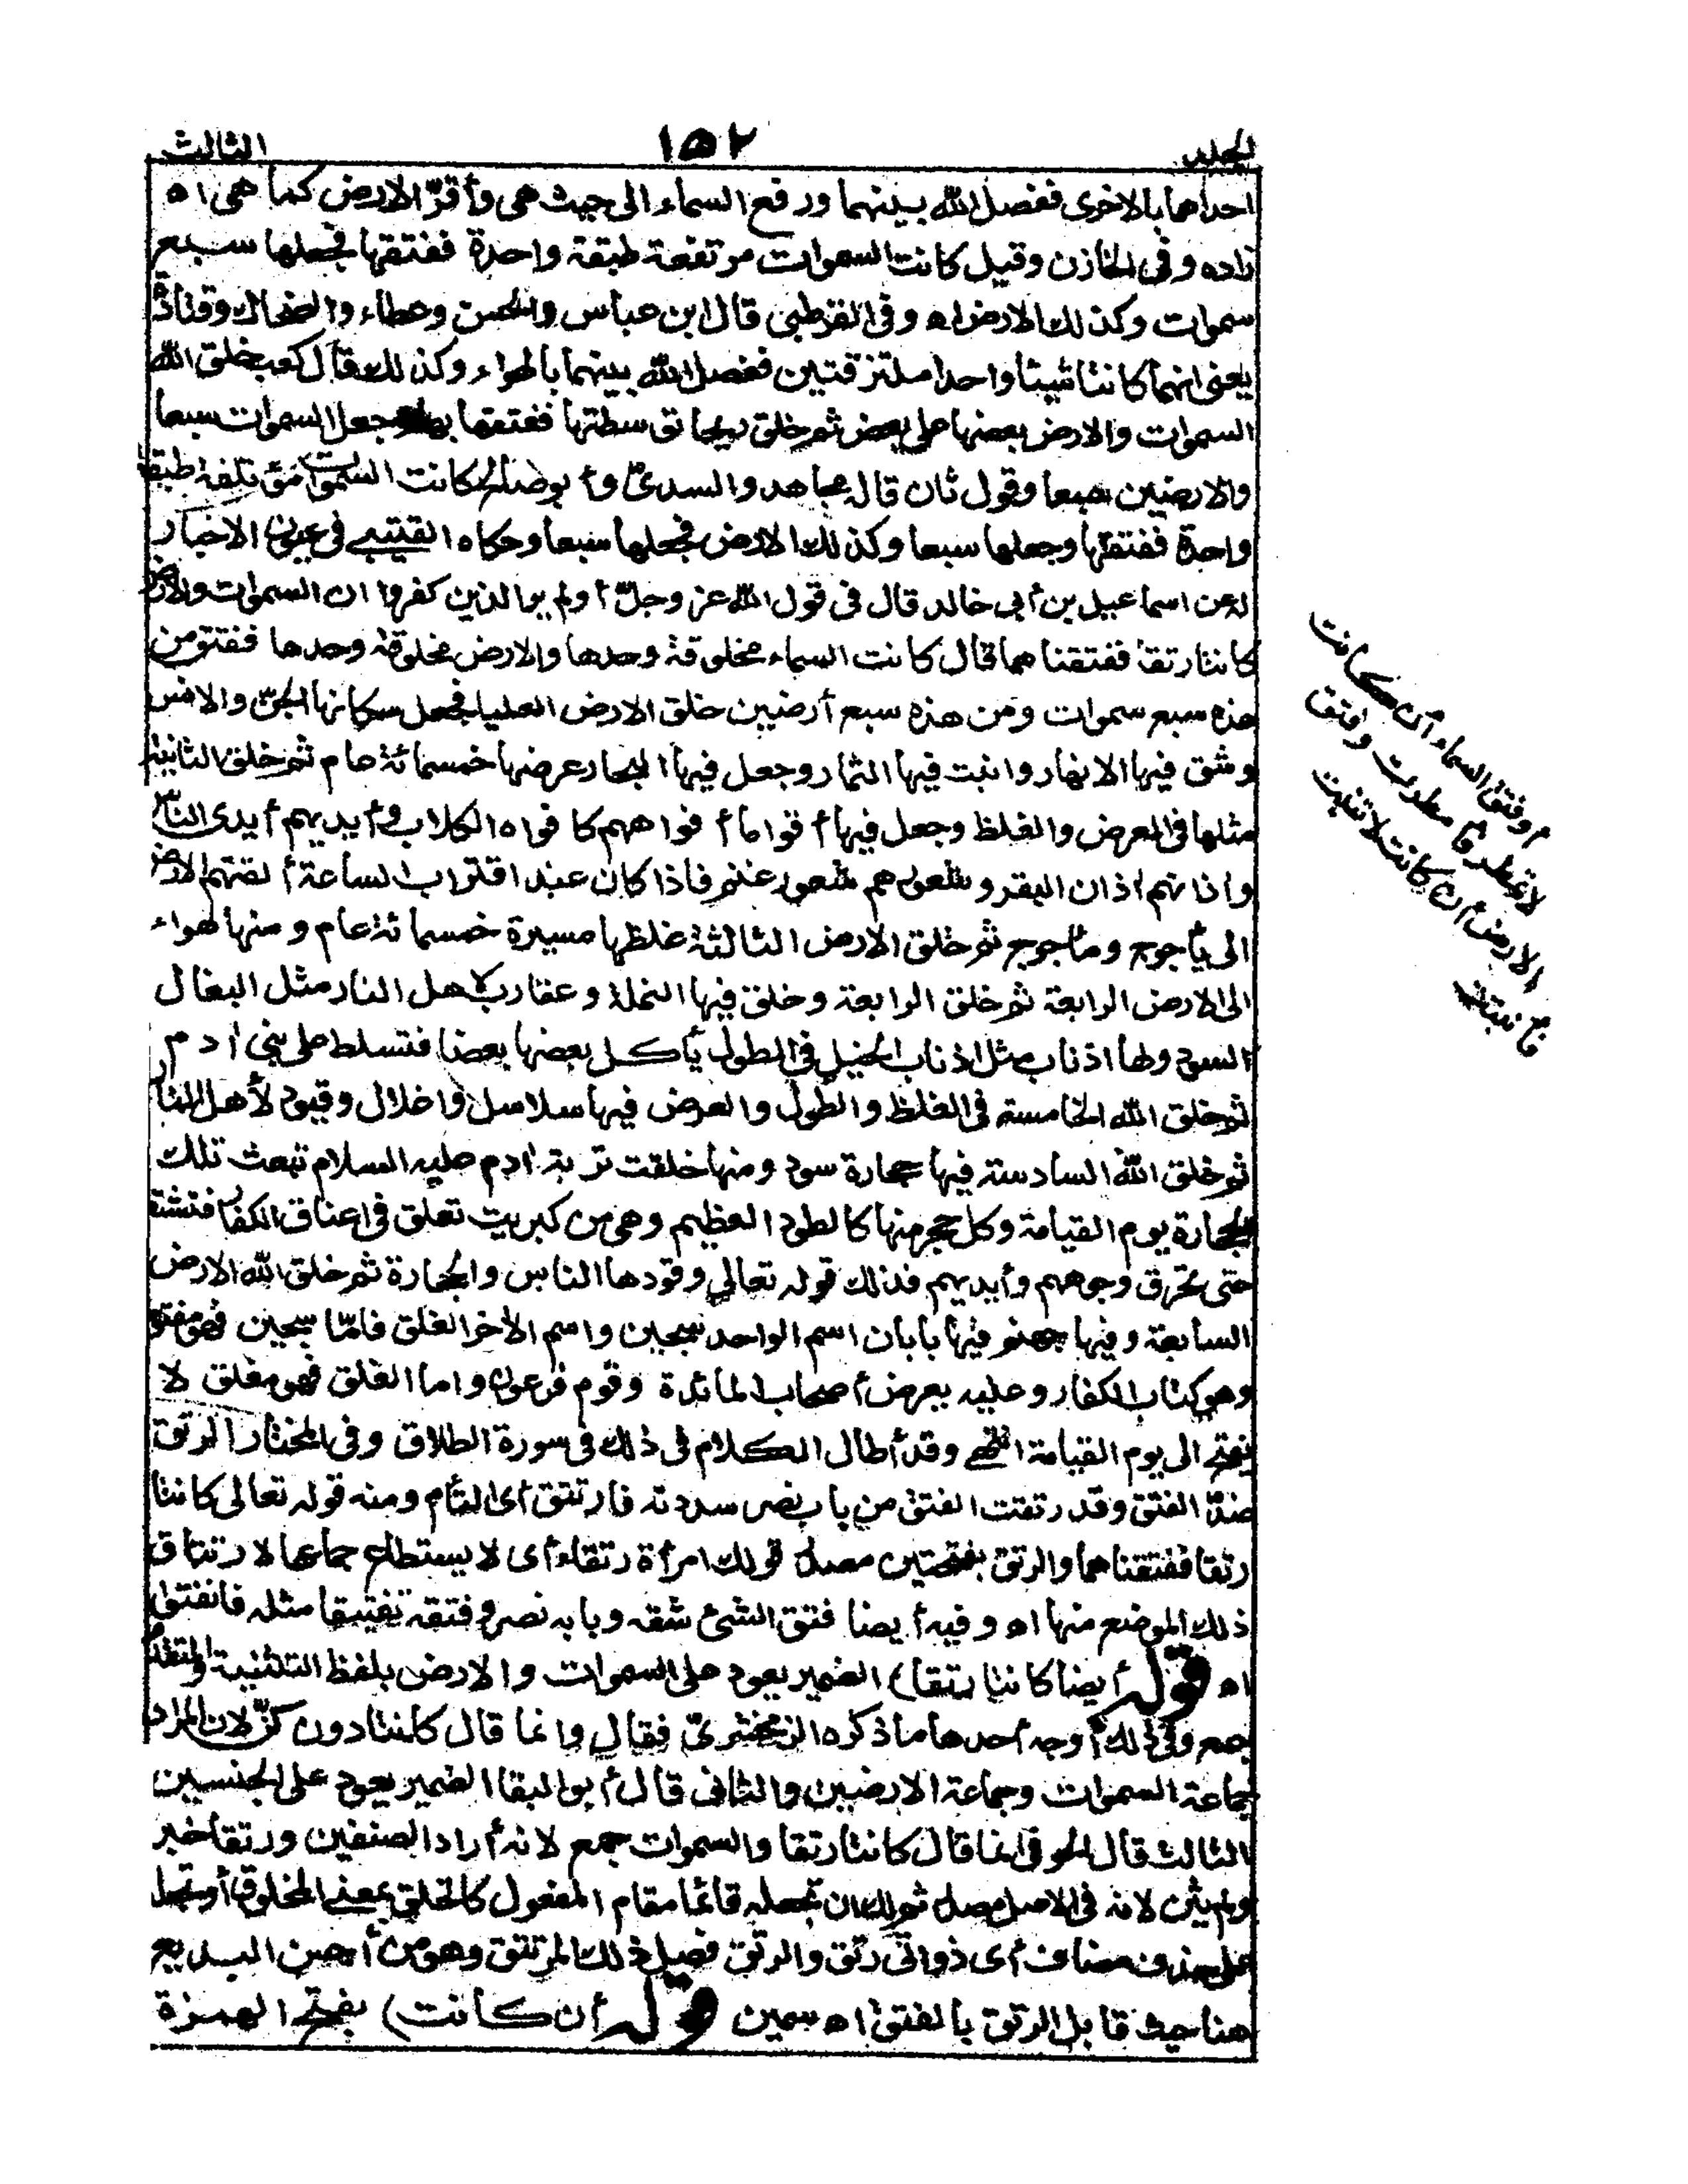 المجلد ١٥٢ الثالث
احداهما بالاخرى ففصل الله بينهما ورفع السماء الى حيث هى وأقرّ الارض كما هى اه
زاده وفى الخازن وقيل كانت السموات مرتفعة طبقة واحدة ففتقها فجعلها سبع
سموات وكذلك الارض اه وفى القرطبى قال ابن عباس والحسن وعطاء والضحاك وقتادة
يعنى انهما كانتا شيئا واحدا ملتزقتين ففصل الله بينهما بالهواء وكذلك قال كعب خلق الله
السموات والارض بعضها على بعض ثم خلق ريحا توسطتها ففتقها بها وجعل السموات سبعا
والارضين سبعا وقول ثان قاله مجاهد والسدىّ وأبو صالح كانت السموات مؤتلفة طبقة
واحدة ففتقها وجعلها سبعا وكذلك الارض فجعلها سبعا وحكاه القتيبى فى عيون الاخبار
له عن اسماعيل بن أبى خالد قال فى قول الله عز وجلّ أولم ير الذين كفروا ان السموات والارض
كانتا رتقا ففتقناهما قال كانت السماء مخلوقة وحدها والارض مخلوقة وحدها ففتق من
هذه سبع سموات ومن هذه سبع أرضين خلق الارض العليا فجعل سكانها الجنّ والانس
وشق فيها الانهار وانبت فيها الثمار وجعل فيها البحار عرضها خمسمائة عام ثم خلق الثانية
مثلها فى العرض والغلظ وجعل فيها أقواما أفواههم كافواه الكلاب وأيديهم أيدى الناس
واذانهم اذان البقر وشعورهم شعور غنم فاذا كان عند اقتراب الساعة ألقتهم الارض
الى يأجوج ومأجوج ثم خلق الارض الثالثة غلظها مسيرة خمسمائة عام ومنها هواء
الى الارض الرابعة ثم خلق الرابعة وخلق فيها النملة وعقارب لاهل النار مثل البغال
السود ولها اذناب مثل اذناب الخيل فى الطول يأكل بعضها بعضا فتسلط على بنى ادم
ثم خلق الله الخامسة فى الغلظ والطول والعرض فيها سلاسل واغلال وقيود لأهل النار
ثم خلق الله السادسة فيها حجارة سود ومنها خلقت تربة ادم عليه السلام تبعث تلك
الحجارة يوم القيامة وكل حجر منها كالطود العظيم وهى من كبريت تعلق فى اعناق الكفار فتشتعل
حتى تحرق وجوههم وأيديهم فذلك قوله تعالى وقودها الناس والحجارة ثم خلق الله الارض
السابعة وفيها جهنم فيها بابان اسم الواحد سجين واسم الأخر الغلق فامّا سجين فهو مفتوح
وهو كتاب الكفار وعليه يعرض أصحاب المائدة وقوم فرعون واما الغلق فهو مغلق لا
يفتح الى يوم القيامة انتهى وقد أطال الكلام فى ذلك فى سورة الطلاق وفى المختار الرتق
ضدّ الفتق وقد رتقت الفتق من باب نصر سددته فارتتق أى التأم ومنه قوله تعالى كانتا
رتقا ففتقناهما والرتق بفتحتين مصدر قولك امرأة رتقاء أى لا يستطاع جماعها لارتتاق
ذلك الموضع منها اه وفيه أيضا فتق الشئ شقه وبابه نصر وفتقه تفتيقا مثله فانفتق
اه قوله أيضا كانتا رتقا) الضمير يعود على السموات والارض بلفظ التثنية والمتقدم
جمع وفى ذلك أوجه أحدها ما ذكره الزمخشرىّ فقال وانما قال كانتا دون كنّ لان المراد
جماعة السموات وجماعة الارضين والثانى قال أبو البقا الضمير يعود على الجنسين
الثالث قال الحوفى انما قال كانتا رتقا والسموات جمع لانه أراد الصنفين ورتقا خبر
ولم يثن لانه فى الاصل مصدر ثم لك ان تجعله قائما مقام المفعول كالخلق بمعنى المخلوق أو تجعله
على حذف مضاف أى ذواتى رتق والرتق فصيل ذلك المرتتق وهو من أحسن البديع
هنا حيث قابل الرتق بالفتق اه سمين قوله أن كانت) بفتح الهمزة
أو فتق السماء أن كانت
لا تمطر فأمطرت وفتق
الارض أن كانت لا تنبت
فأنبتت